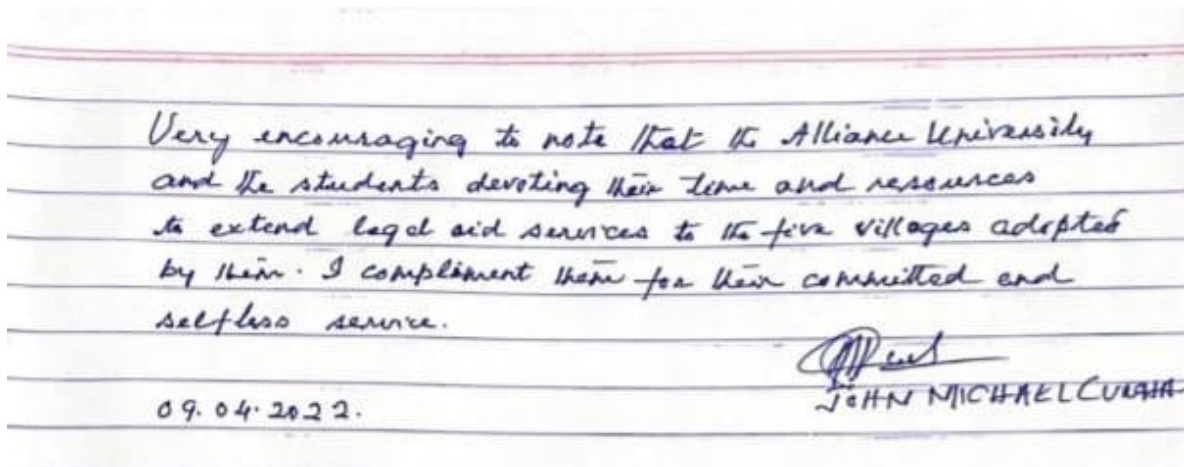 Very encouraging to note that the Alliance University
and the students devoting their time and resources
to extend legal aid services to the five villages adopted
by them. I compliment them for their committed and
selfless service.
JOHN MICHAEL CUNHA
09.04.2022.